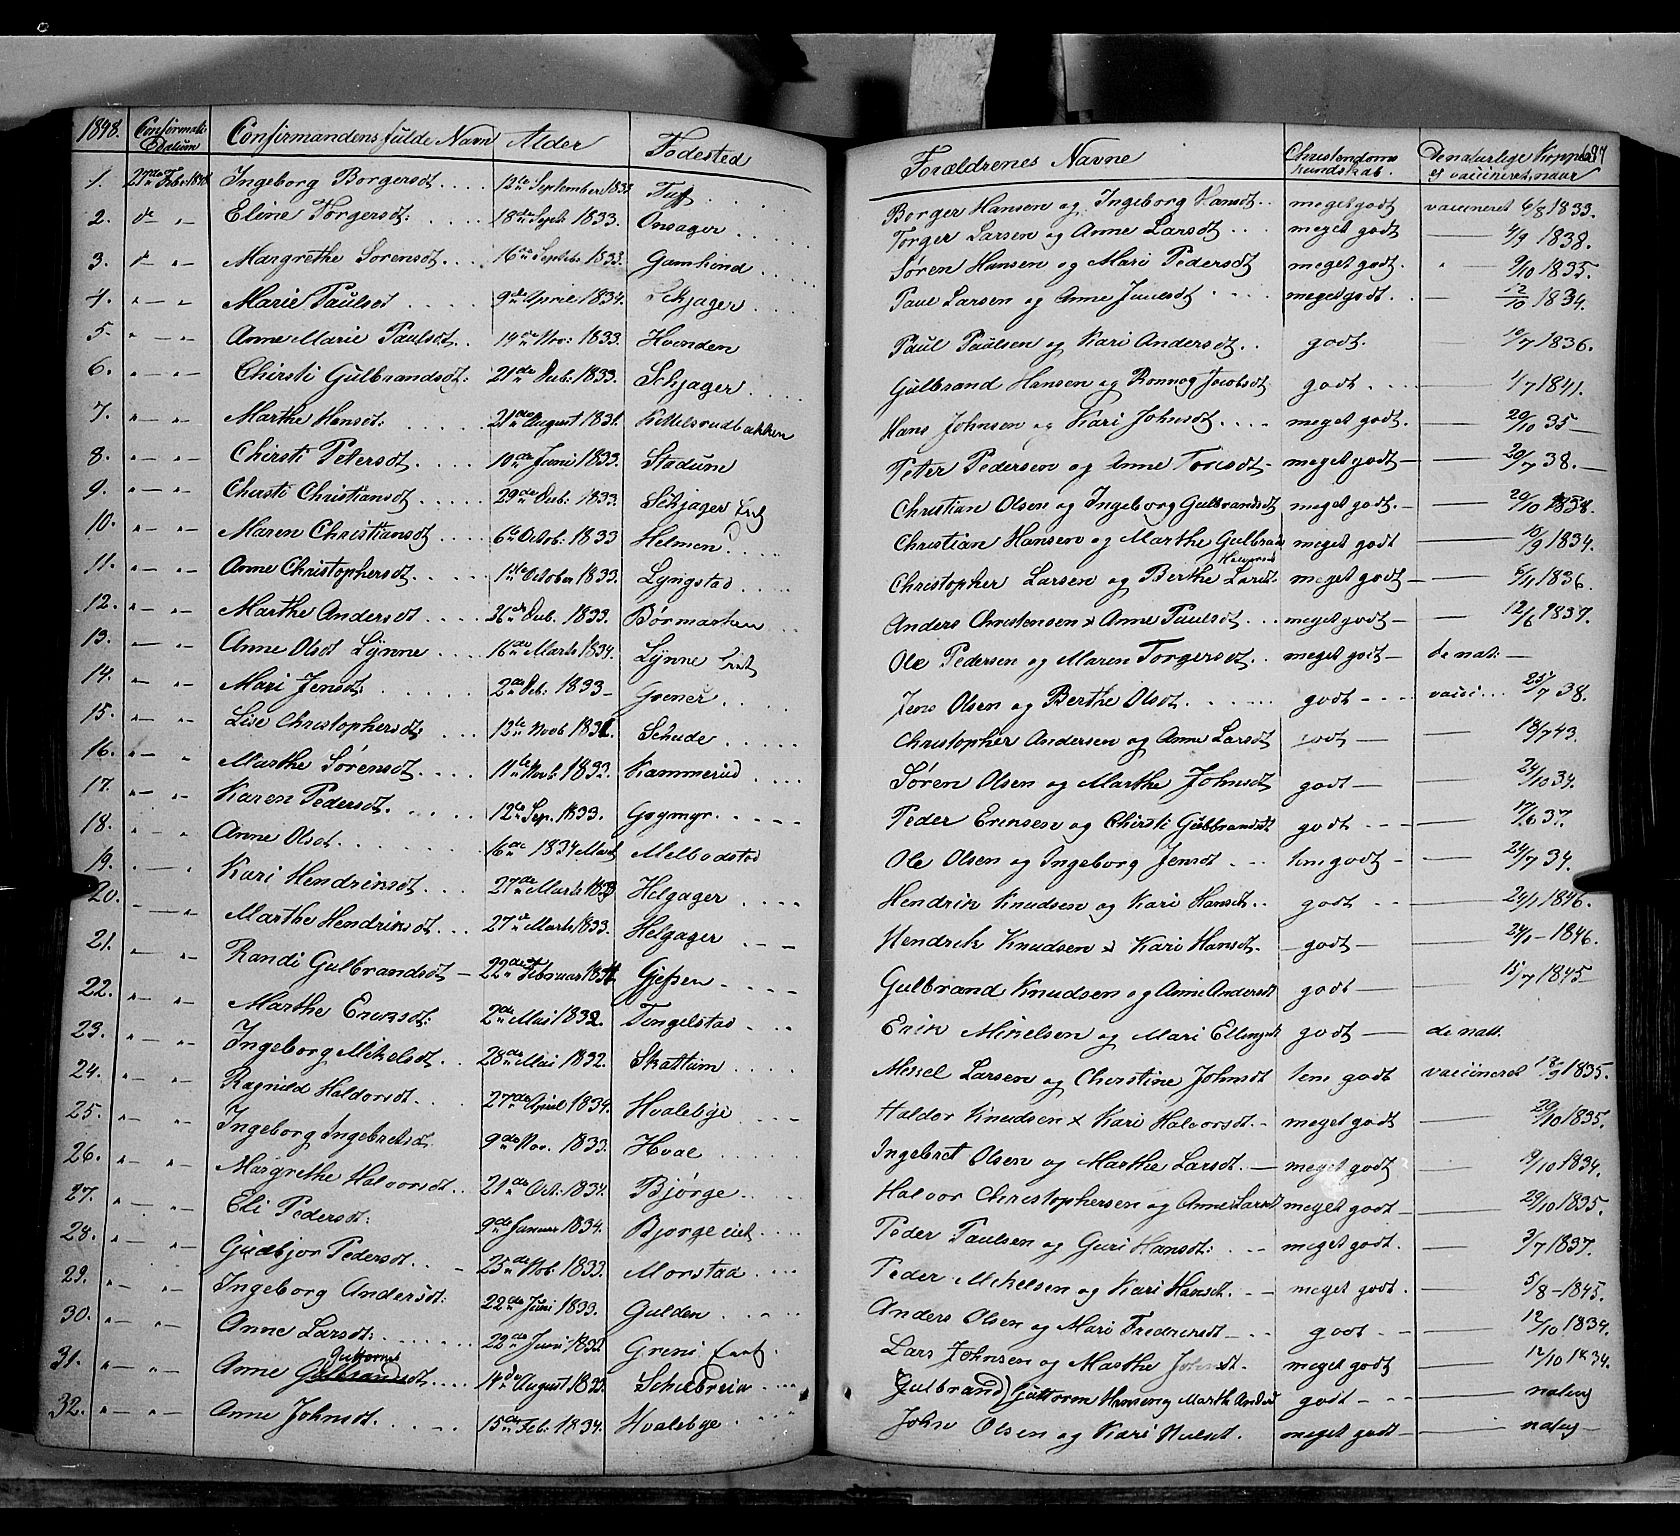 1848. Confirmat: Datum Confirmandens fulde Navn Alder Fodested Forældrenes Navne Christendoms kundskab. De naturlige Kopper el vaccineret, naar
1. Ingeborg Borgersdt 12te September 1833 Borger Hansen og Ingeborg Hansdt meget godt vaccineret 6/8 1833.
2. do " Eline Torgersdt: 18de Sept: 1833. Onsager Torger Larsen og Anne Larsdt meget godt — 4/9 1838.
3. Margrethe Sorensdt 16de Septb: 1833. Gamkind Søren Hansen og Mari Pedersdt meget godt. 9/10 1835.
4. Marie Paulsdt 9de April 1834. Schjager Paul Larsen og Anne Juulsdt meget godt. — 12/10 1834.
5. Anne Marie Paulsdt 19de Nov: 1833. Hvinden Paul Paulsen og Kari Andersdt godt. — 10/7 1836.
6. Chirsti Gulbrandsdt: 21de Deb: 1833. Schjager Gulbrand Hansen og Ronnog Jacobsdt godt — 1/7 1841.
7. Marthe Hansdt: 21de August 1831. Kittelsrudbakken Hans Johnsen og Kari Johnsdt meget godt. — 20/10 35
8. Chirsti Petersdt 10de Juni 1833. Stadum Peter Pedersen og Anne Toresdt meget godt — 20/7 38.
9. Chirsti Christiansdt 29de Deb. 1833. Schjager Christian Olsen og Ingeborg Gulbrandsdt meget godt. — 20/10 1838.
10. Maren Christiansdt 6te Octob. 1833 Helmen Christian Hansen og Marthe meget godt — 1834.
11. Anne Christophersdt 1ste October 1833. Lyngstad Christopher Larsen og Berthe Larsdt meget godt — 6/11 1836
12. Marthe Andersdt 26de Deb. 1833. Børmarken Anders Christensen x Anne Paulsdt meget godt — 12/6 1837.
13. Anne Olsdt Lynne 16de Marts 1834. Lynne Ole Pedersen og Maren Torgersdt meget godt — de nat: —
14. Mari Jensdt: 2de Deb: 1833 — Graner Jens Olsen og Berthe Olsdt godt — vacci 25/7 38.
15. Lise Christophersdt 12te Novb 1831. Schude Christopher Andersen og Anne Larsdt godt — 18/7 43.
16. Marthe Sørensdt 11te Novb. 1832. Kammerud Søren Olsen og Marthe Johnsdt godt — 24/10 34.
17. Karen Pedersdt. 12te Sep. 1833. Gogmyr Peder Ericsen og Chirsti Gulbrandsdt godt — 17/6 37.
18. Anne Olsdt 16de 1834 Mart Melbodstad Ole Olsen og Ingeborg Jensdt godt — 24/7 34.
19. Kari Hendriksdt 27de Marts 1833 Helgager Hendrik Knudsen og Kari Hansdt godt — 24/1 1846.
20. Marthe Hendriksdt 27de Marts 1833. Helgager Hendrik Knudsen x Kari Hansdt. godt — 24/1 — 1846.
21. Randi Gulbrandsdt — 22de Februar 1834 Gjefsen Gulbrand Knudsen og Anne Andersdt godt — 15/7 1845
22. Marthe Ericsdt: 2de Mai 1832. Tengelstad Erik Mikelsen og Mari Ellingsdt godt — de natt.
23. Ingeborg Mikelsdt 28de Mai 1832. Skattum Mikkel Larsen og Cherstine Johnsdt godt vacciineret 1835.
24. Ragnild Haldorsdt 27de April 1834. Hvalebye Haldor Knudsen x Kari Halvorsdt. meget godt — 20/10 1835.
25. Ingeborg Ingebretsdt 9de Nov. 1833. Hval Ingebret Olsen og Marthe Larsdt. — meget godt — 9/10 1834.
26. Margrethe Halvorsdt 21de Oct: 1834. Bjørge Halvor Christophersen og Anne Larsdt meget godt — 29/10 1835.
27. Eli Pedersdt: 9de Januar 1834. Bjorge Peder Paulsen og Guri Hansdt: meget godt. — 3/7 1837.
28. Gudbjor Pedersdt 25de Nob. 1833. Morstad Peder Mikelsen og Kari Hansdt. meget godt. — 5/8 — 1845.
29. Ingeborg Andersdt: 22de Juni 1833. Gulden Anders Olsen og Mari Fredricsdt godt — 12/10 1834.
30. Anne Larsdt: 22de Juni 1832 Greni Lars Johnsen og Marthe Johnsdt. meget godt — 12/10 1834.
31. Anne Guttorms Gulbrandsdt 14de August 1833. Schiebrein Gulbrand) Guttorm Hansen og Marth Andersd godt —
32. Anne Johnsdt. 15de Feb: 1834. Hvalebye John Olsen og Kari meget godt —